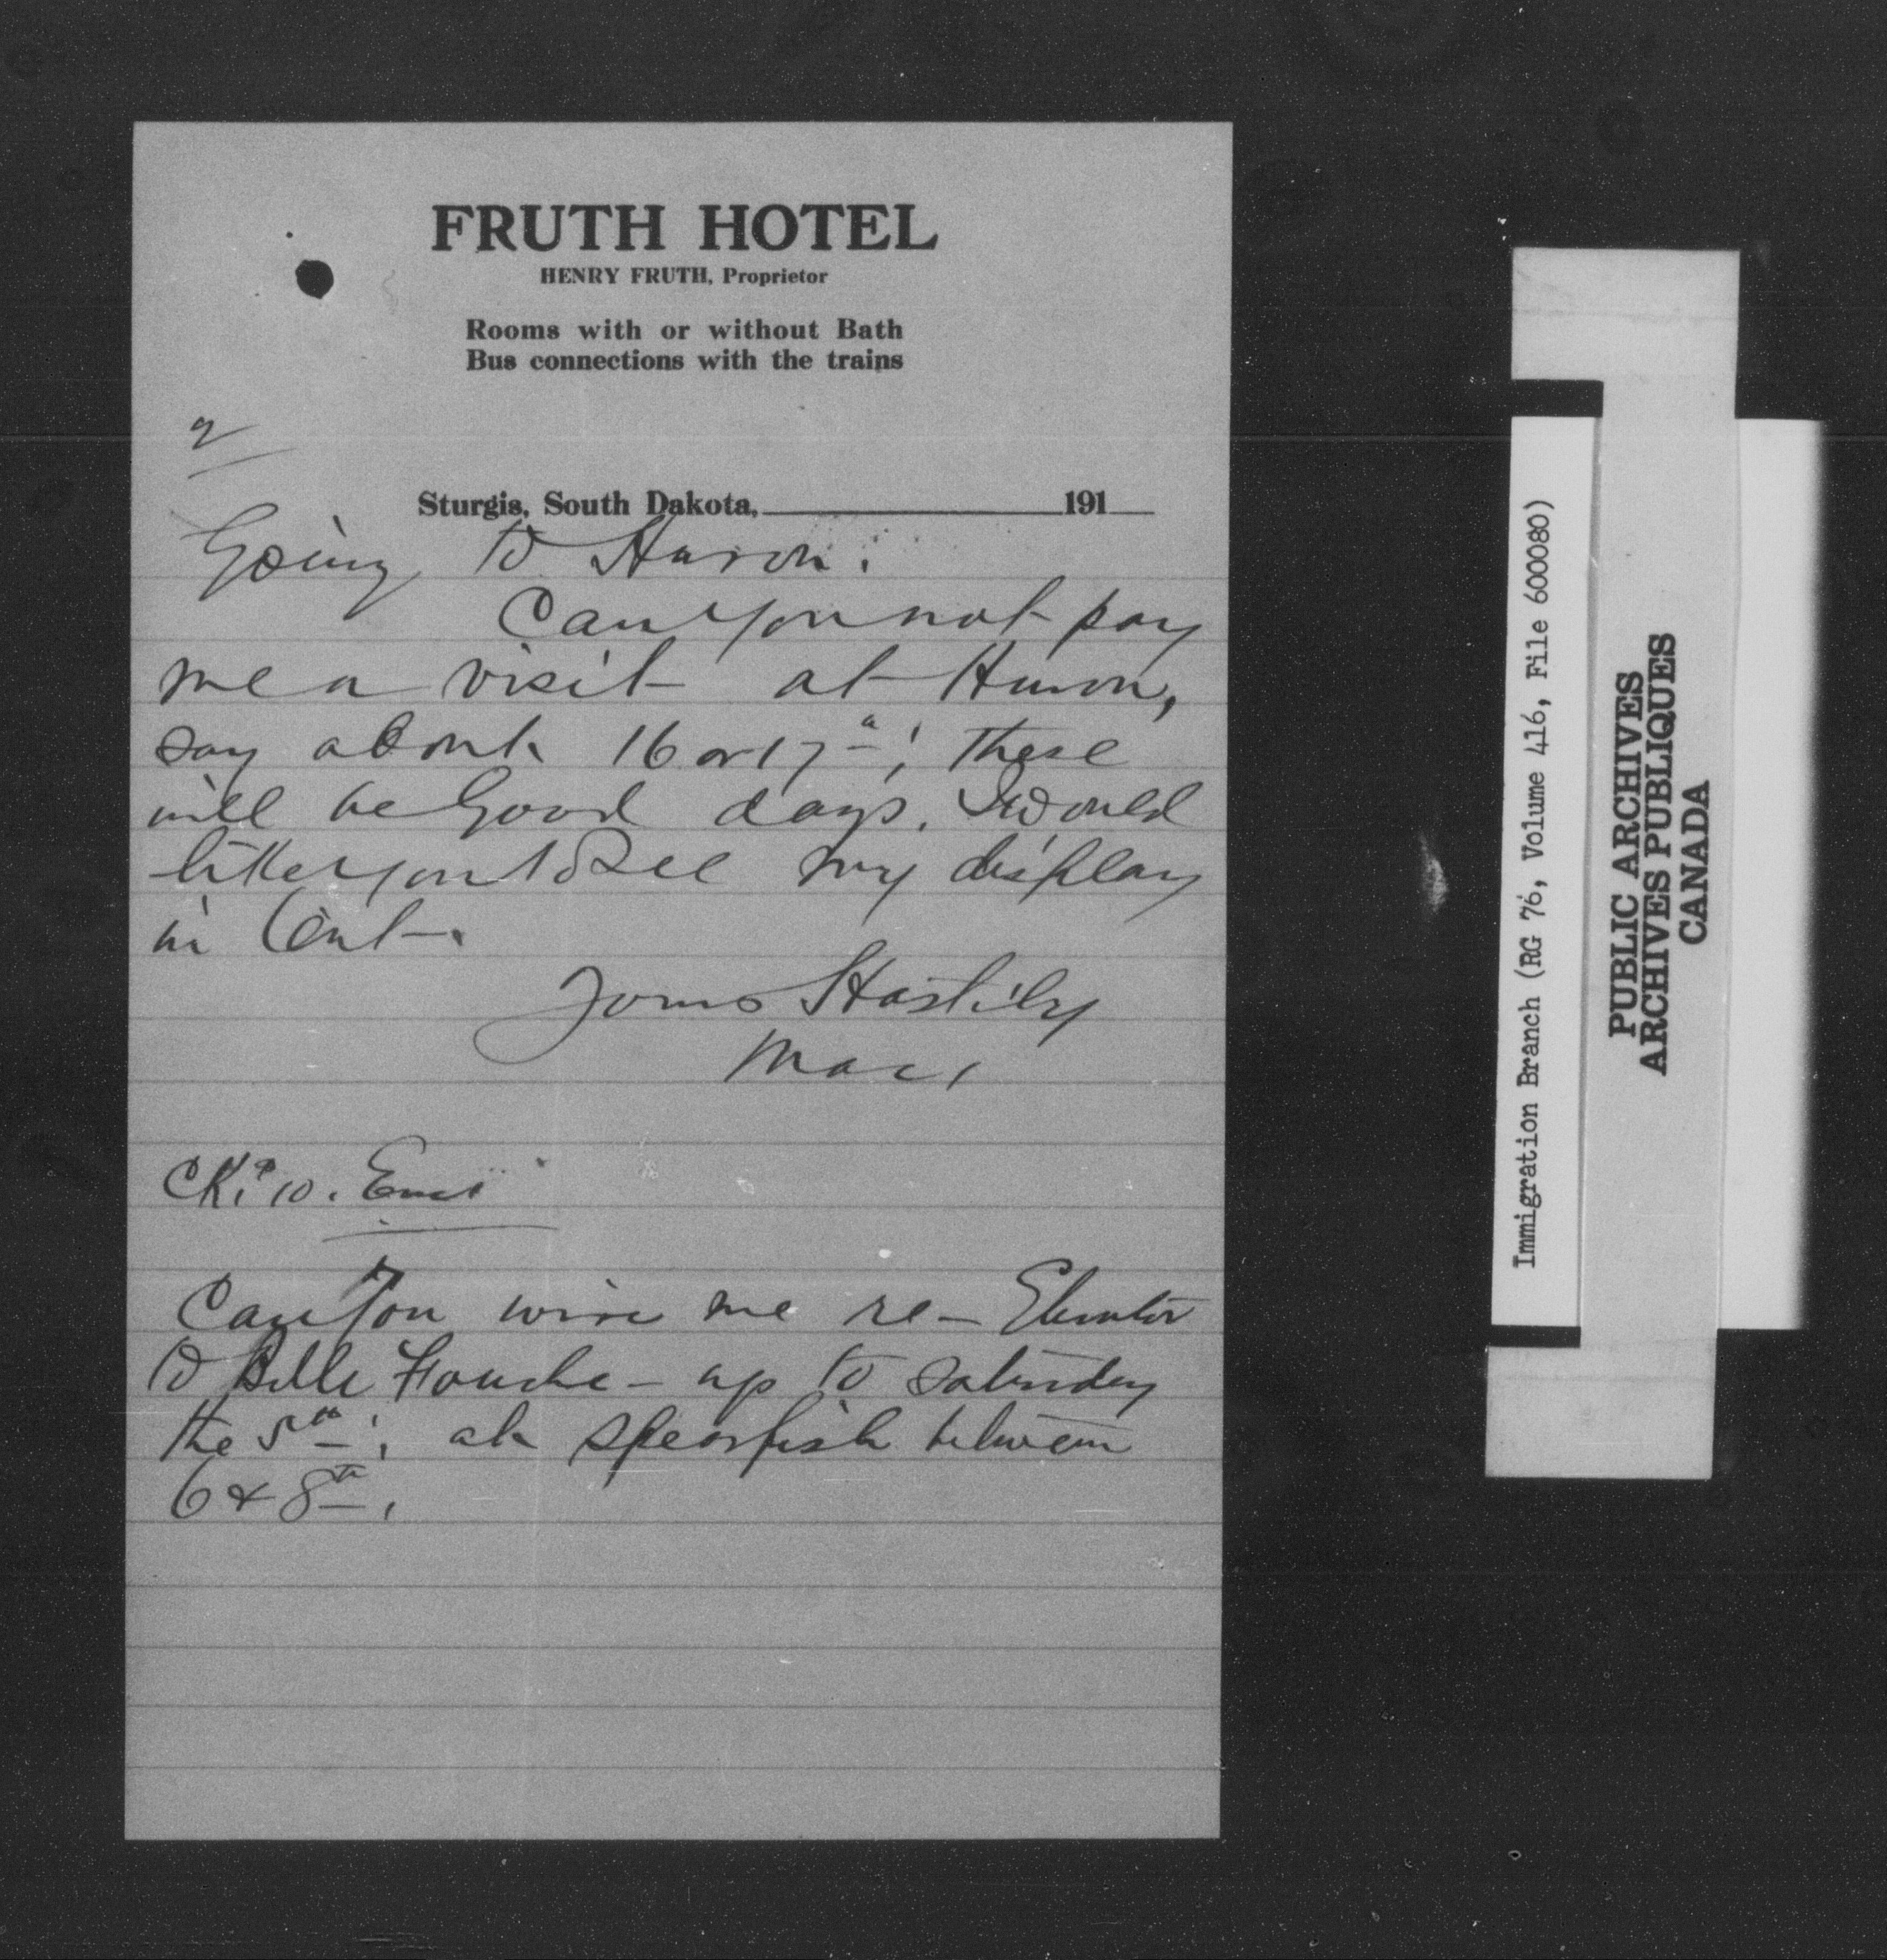 FRUTH HOTEL
HENRY FRUTH, Proprietor
Rooms with or without Bath
Bus connections with the trains
2
Sturgis, South Dakota, 191
Going to Huron.
Can you not pay
me a visit at Huron,
say about 16 or 17th; these
will be Good days. I would
like you to see my display
in tent.
Yours Hastily
Mac
Can You wire me re-
to Belle Fourche - up to Saturday
the 5th; at Spearfish between
6 & 8th.
Immigration Branch (RG 76, Volume 416, File 600080)
PUBLIC ARCHIVES
ARCHIVES PUBLIQUES
CANADA